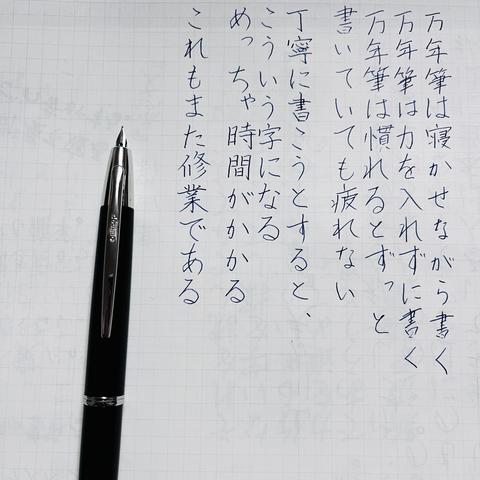 万年筆は寝かせながら書く
万年筆は力を入れずに書く
万年筆は慣れるとずっと
書いていても疲れない
丁寧に書こうとすると、
こういう字になる
めっちゃ時間がかかる
これもまた修業である